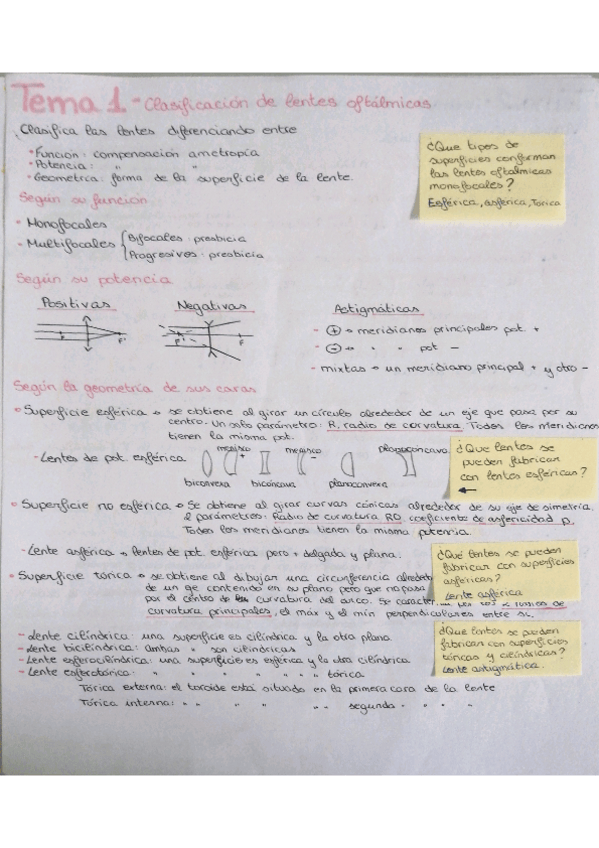 Tema 1 - Clasificación de lentes oftálmicas
Clasifica las lentes diferenciando entre
• Función: compensación ametropía
• Potencia: " "
• Geometría: forma de la superficie de la lente.
¿Que tipos de
superficies conforman
las lentes oftalmicas
monofocales?
Esférica, asférica, Tórica
Según su función
• Monofocales
• Multifocales { Bifocales: presbicia
Progresivos: presbicia
Según su potencia
Positivas
Negativas
Astigmáticas
F'
F'
- + → meridianos principales pot. +
- - → " " pot -
- mixtas → un meridiano principal + y otro -
Según la geometría de sus caras
• Superficie esférica → se obtiene al girar un círculo alrededor de un eje que pasa por su
centro. Un solo parámetro: R, radio de curvatura. Todos los meridianos
tienen la misma pot.
- Lentes de pot. esférica
menisco +
menisco -
planoconcava.
biconvexa
bicóncava
planoconvexa
¿Que lentes se
pueden fabricar
con lentes esféricas?
←
• Superficie no esférica → Se obtiene al girar curvas cónicas alrededor de su eje de simetría.
2 parámetros: Radio de curvatura R0 coeficiente de asfericidad p.
Todos los meridianos tienen la misma potencia.
- Lente asférica → lentes de pot. esférica pero + delgada y plana.
¿Qué lentes se pueden
fabricar con superficies
asféricas?
Lente asférica
• Superficie tórica → se obtiene al dibujar una circunferencia alrededo
de un eje contenido en su plano pero que no pasa
por el centro de curvatura del arco. Se caracteriza por los 2 radios de
curvatura principales, el máx y el mín perpendiculares entre si.
- Lente cilíndrica: una superficie es cilíndrica y la otra plana.
- Lente bicilíndrica: ambas " son cilíndricas
- Lente esferocilíndrica: una superficie es esférica y la otra cilíndrica
- Lente esferotórica: " " " " " " tórica
Tórica externa: el toroide está situado en la primera cara de la lente
Tórica interna: " " " " " segunda " " "
¿Qué lentes se pueden
fabricar con superficies
tóricas y cilíndricas?
Lente astigmática.